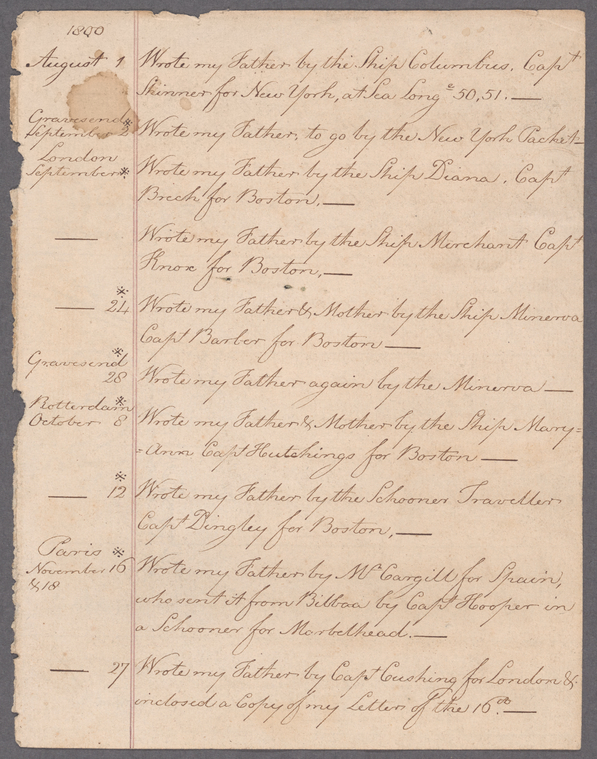 1800
August 1 Wrote my Father by the Ship Columbus, Capt
Skinner for New York, at Sea Longe 50,51.—
Gravesend ※
September 2 Wrote my Father, to go by the New York Packet—
London
September ※ Wrote my Father by the Ship Diana, Capt
Breck for Boston,—
— Wrote my Father by the Ship Merchant Capt
Knox for Boston,—
※
— 24 Wrote my Father & Mother by the Ship Minerva
Capt Barber for Boston —
Gravesend ※
28 Wrote my Father again by the Minerva —
Rotterdam ※
October 8 Wrote my Father & Mother by the Ship Mary=
=Ann Capt Hutchings for Boston —
※
— 12 Wrote my Father by the Schooner Traveller
Capt Dingley for Boston,—
Paris ※
November 16 Wrote my Father by Mr Cargill for Spain,
& 18 who sent it from Bilbaa by Capt Hooper in
a Schooner for Marbelhead.—
— 27 Wrote my Father by Capt Cushing for London &
inclosed a Copy of my Letter of the 16.—